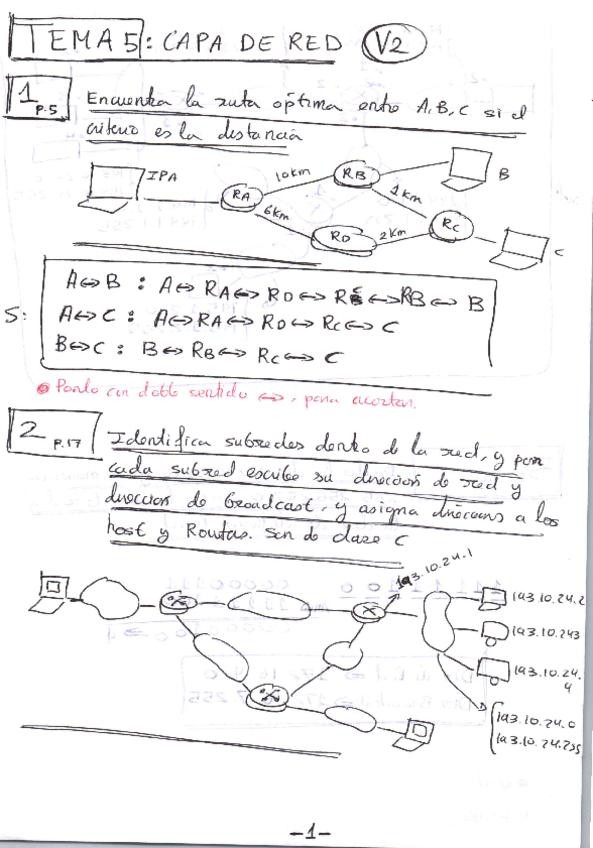 TEMA 5: CAPA DE RED V2
1 P.5
Encuentra la ruta óptima entre A, B, C si el
criterio es la distancia
IPA
RA
10km
RB
B
1km
6km
RD
2km
RC
C
S:
A↔B : A↔RA↔RD↔RC↔RB↔B
A↔C : A↔RA↔RD↔RC↔C
B↔C : B↔RB↔RC↔C
Ponlo con doble sentido ↔, para acortar.
2 P.17
Identifica subredes dentro de la red, y para
cada subred escribe su dirección de red y
dirección de broadcast, y asigna direcciones a los
host y Routers. Son de clase C
193.10.24.1
193.10.24.2
193.10.243
193.10.24.
4
193.10.24.0
193.10.24.255
-1-